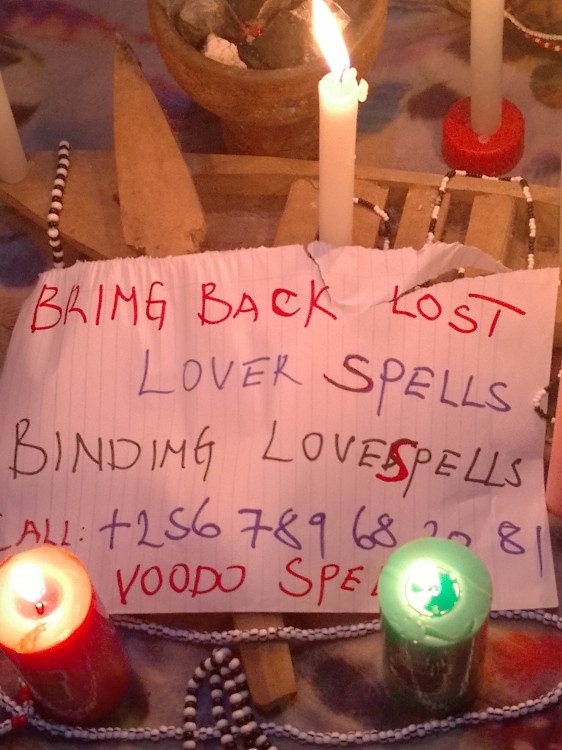 BRING BACK LOST
LOVER SPELLS
BINDING LOVE SPELLS
CALL: +256 789 68 20 81
VOODO